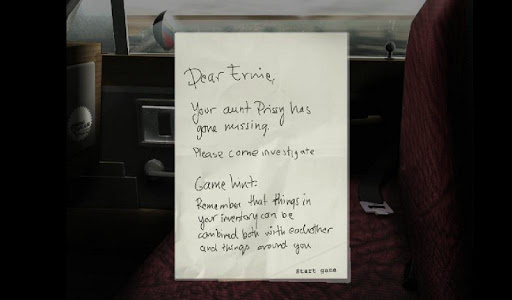 Dear Ernie,
Your aunt Prissy has
gone missing.
Please come investigate
Game hint:
Remember that things in
your inventory can be
combined both with eachother
and things around you
Start game